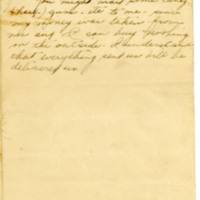 You might mail some candy,
gum - etc to me - since
my money was taken from
me and I can buy nothing
on the outside. I understand
that everything sent us will be
delivered us.